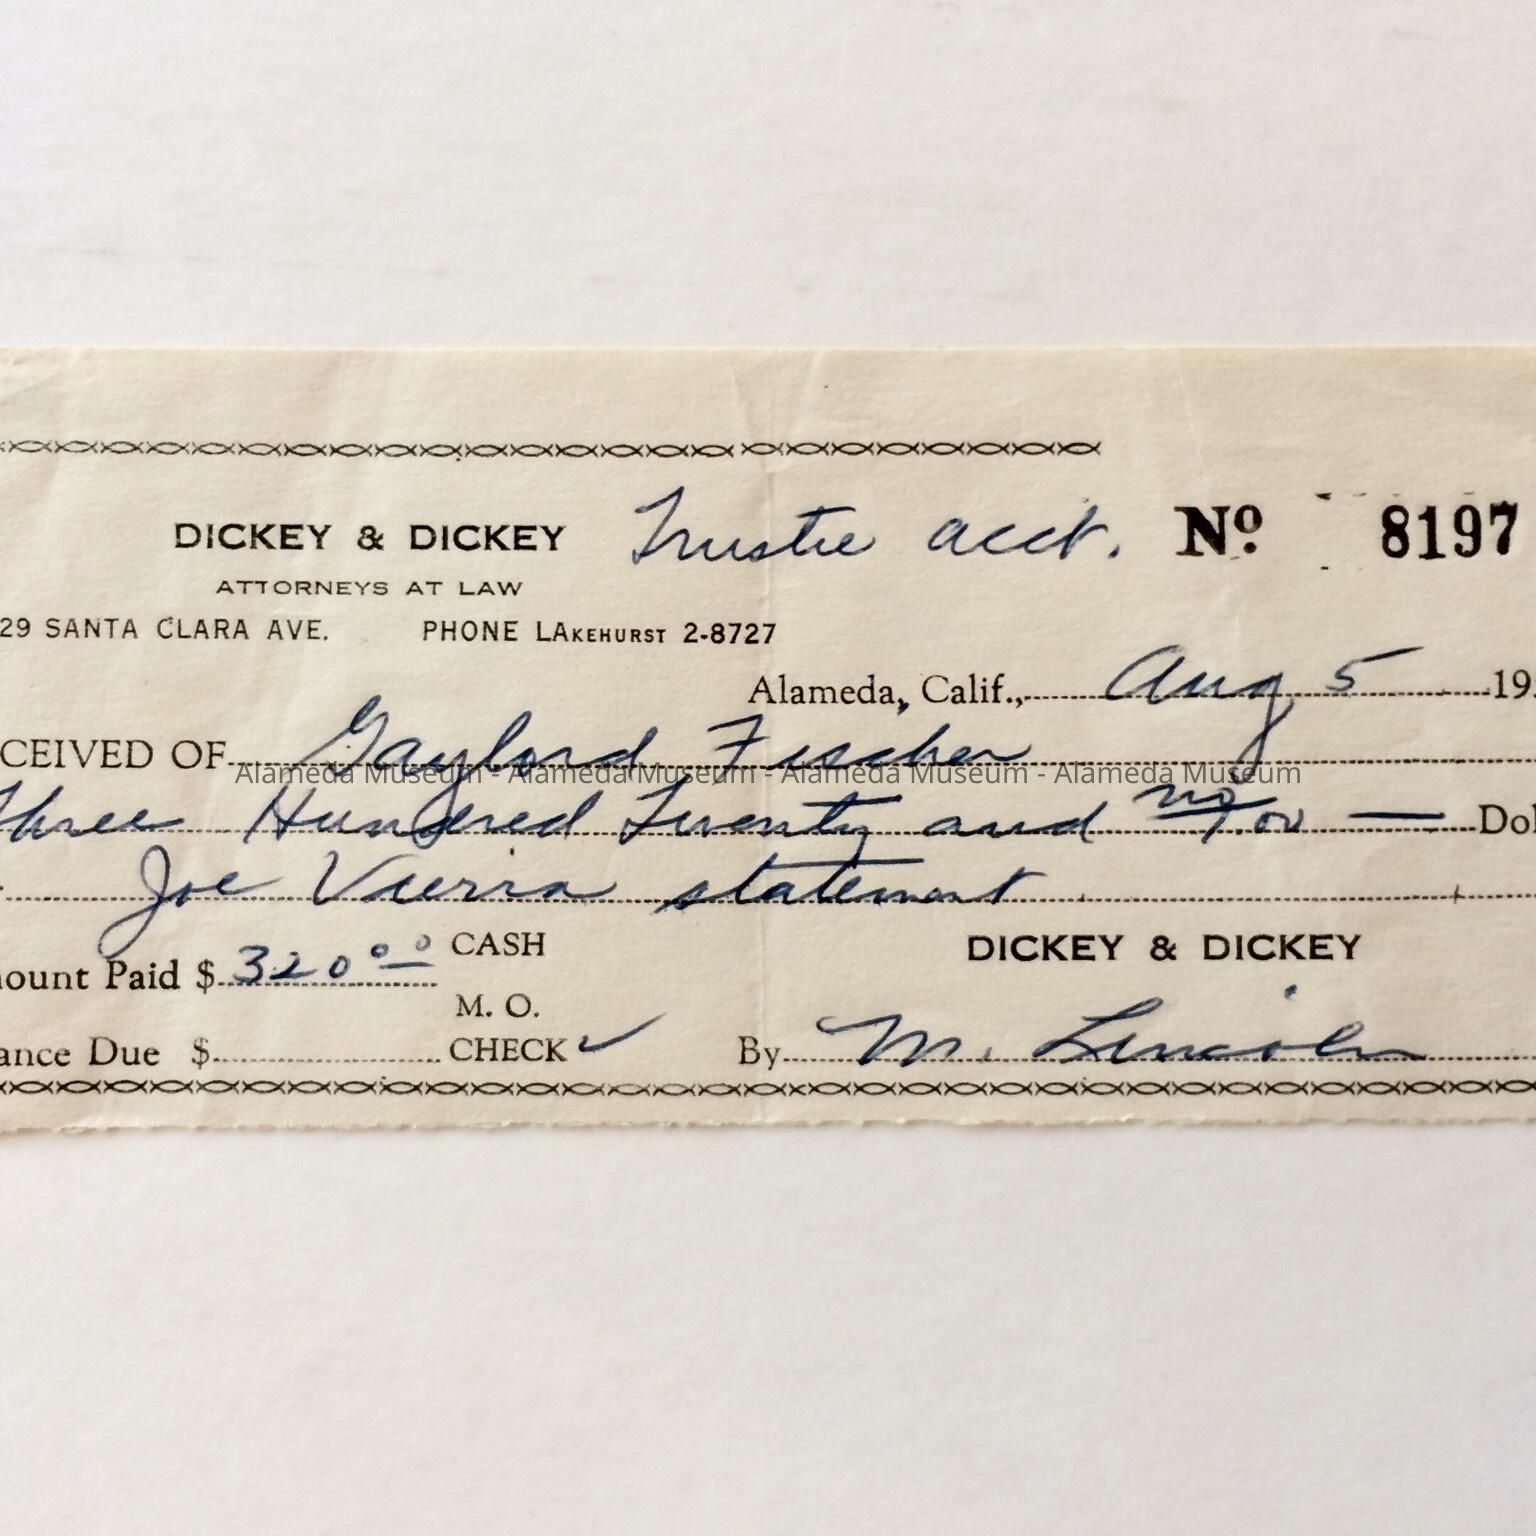 DICKEY & DICKEY Trustee acct. Nº 8197
ATTORNEYS AT LAW
29 SANTA CLARA AVE. PHONE LAKEHURST 2-8727
Alameda, Calif., Aug 5 19
CEIVED OF Gaylord Fischer
Alameda Museum - Alameda Museum - Alameda Museum - Alameda Museum
Three Hundred Twenty and no/100 — Dol
Joe Vierra statement
ount Paid $ 320 00 CASH
DICKEY & DICKEY
M. O.
ance Due $ CHECK ✓ By M. Lincoln